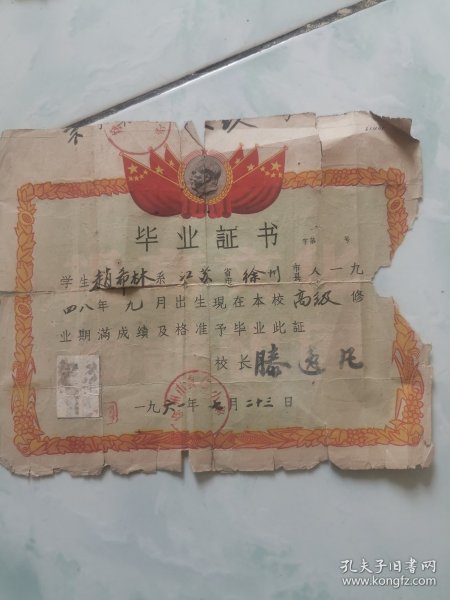 毕业証书
字第 号
学生趙希林系江苏省徐州市县人一九
四八年九月出生現在本校高級修
业期滿成績及格准予毕业此証
校长滕
一九六一年 月二十三日
孔夫子旧书网
www.kongfz.com